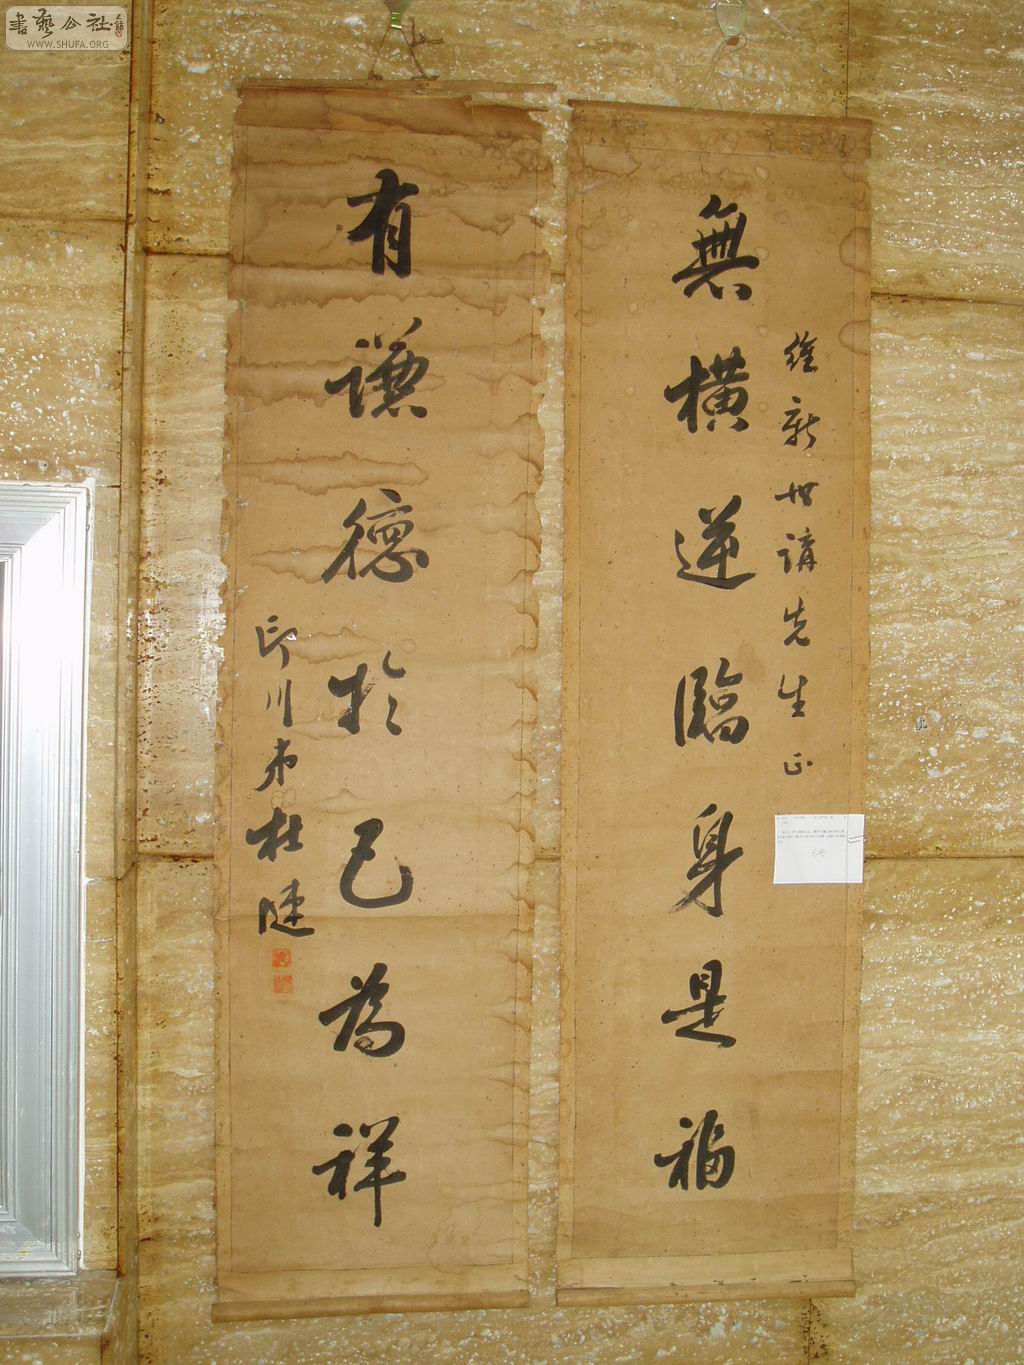 書藝公社
WWW.SHUFA.ORG
新世講先生正
無橫逆臨身是福
有謙德於己為祥
印川弟杜